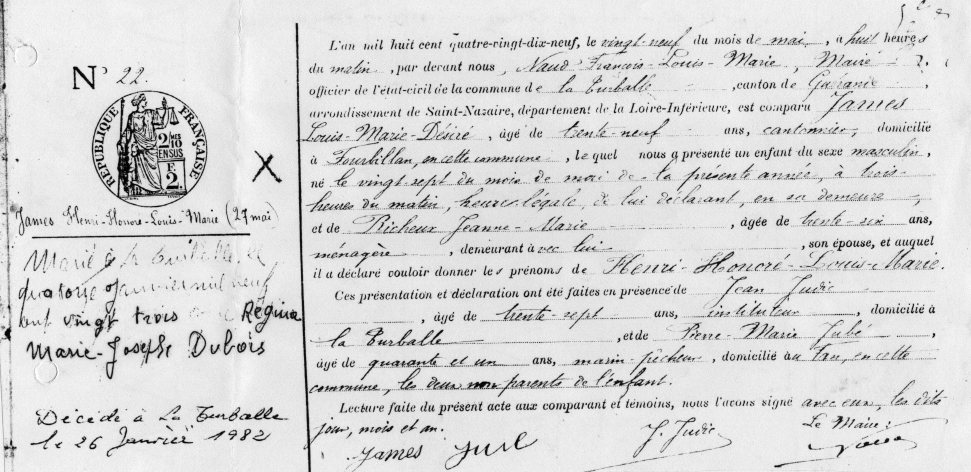 N° 22.
RÉPUBLIQUE FRANÇAISE
2/10
EN SUS
2 F.
James Henri-Honoré-Louis-Marie (27 mai)
Marié à la Turballe, le
quatorze janvier mil neuf
cent vingt trois avec Régina
Marie-Josephe Dubois
Décédé à La Turballe
le 26 Janvier 1982
L'an mil huit cent quatre-vingt-dix-neuf, le vingt-neuf du mois de mai, à huit heures
du matin, par devant nous, Naud François-Louis-Marie, Maire
officier de l'état-civil de la commune de la Turballe, canton de Guérande,
arrondissement de Saint-Nazaire, département de la Loire-Inférieure, est comparu James
Louis-Marie-Désiré, âgé de trente neuf ans, cantonnier, domicilié
à Fourbillan, en cette commune, le quel nous a présenté un enfant du sexe masculin,
né le vingt sept du mois de mai de la présente année, à trois
heures du matin, heure légale, de lui déclarant, en sa demeure,
et de Richeux Jeanne-Marie, âgée de trente-six ans,
ménagère, demeurant avec lui, son épouse, et auquel
il a déclaré vouloir donner les prénoms de Henri-Honoré-Louis-Marie.
Ces présentation et déclaration ont été faites en présence de Jean Judic
, âgé de trente-sept ans, instituteur, domicilié à
la Turballe, et de Pierre-Marie Jubé,
âgé de quarante et un ans, marin-pêcheur, domicilié au Fan, en cette
commune, les deux non parents de l'enfant.
Lecture faite du présent acte aux comparant et témoins, nous l'avons signé avec eux, les dits
jour, mois et an.
Le Maire:
James
J. Judic